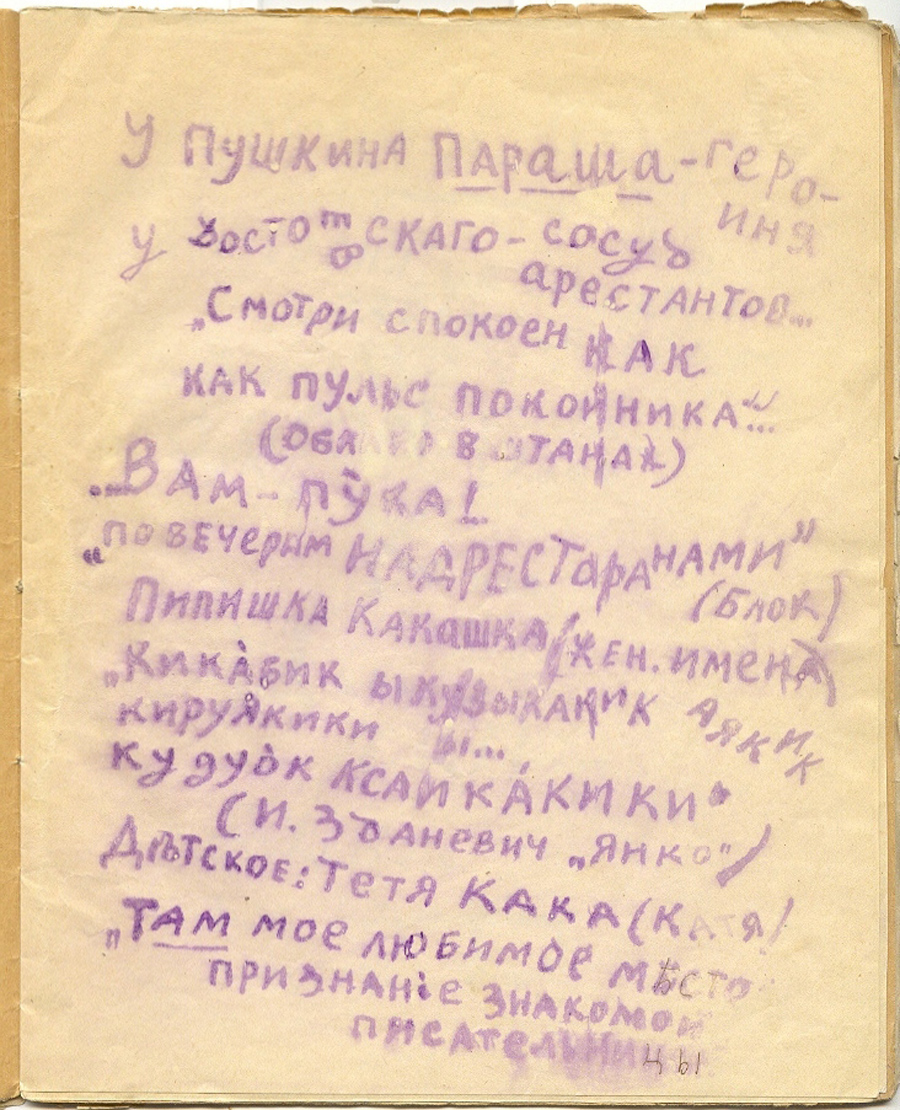 У ПУШКИНА ПАРАША-ГЕРО-
ИНЯ
У ДОСТОЕВСКАГО - СОСУД
АРЕСТАНТОВ...
„СМОТРИ СПОКОЕН КАК
КАК ПУЛЬС ПОКОЙНИКА"...
(ОБЛАКО В ШТАНАХ)
„ВАМ - ПУКА!
„ПО ВЕЧЕРАМ НАД РЕСТОРАНАМИ"
(БЛОК)
ПИПИШКА КАКАШКА (ЖЕН. ИМЕНА)
„КИКА́БИК Ы КУЗЫКАКИК АЯКИК
КИРУЯКИКИ Ы...,
КУДУБК КСАИКА́КИКИ"
(И. ЗДАНЕВИЧ „ЯНКО")
ДѢТСКОЕ: ТЕТЯ КАКА (КАТЯ)
„ТАМ МОЕ ЛЮБИМОЕ МѢСТО
ПРИЗНАНІЕ ЗНАКОМОЙ
ПИСАТЕЛЬНИЦЫ